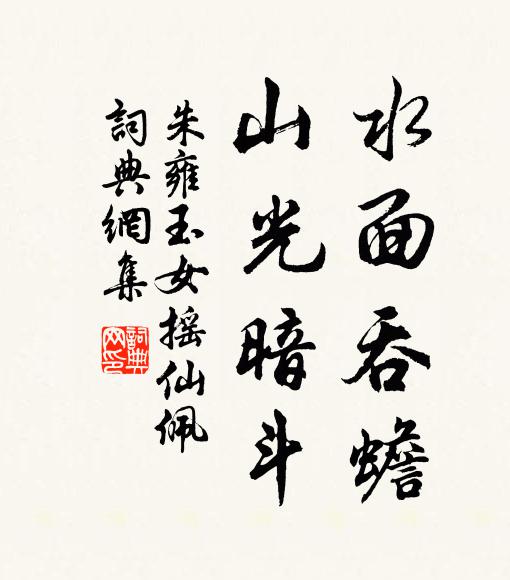 水面吞蟾
山光暗斗
朱雍玉女摇仙佩
詞典網集
詞典网印